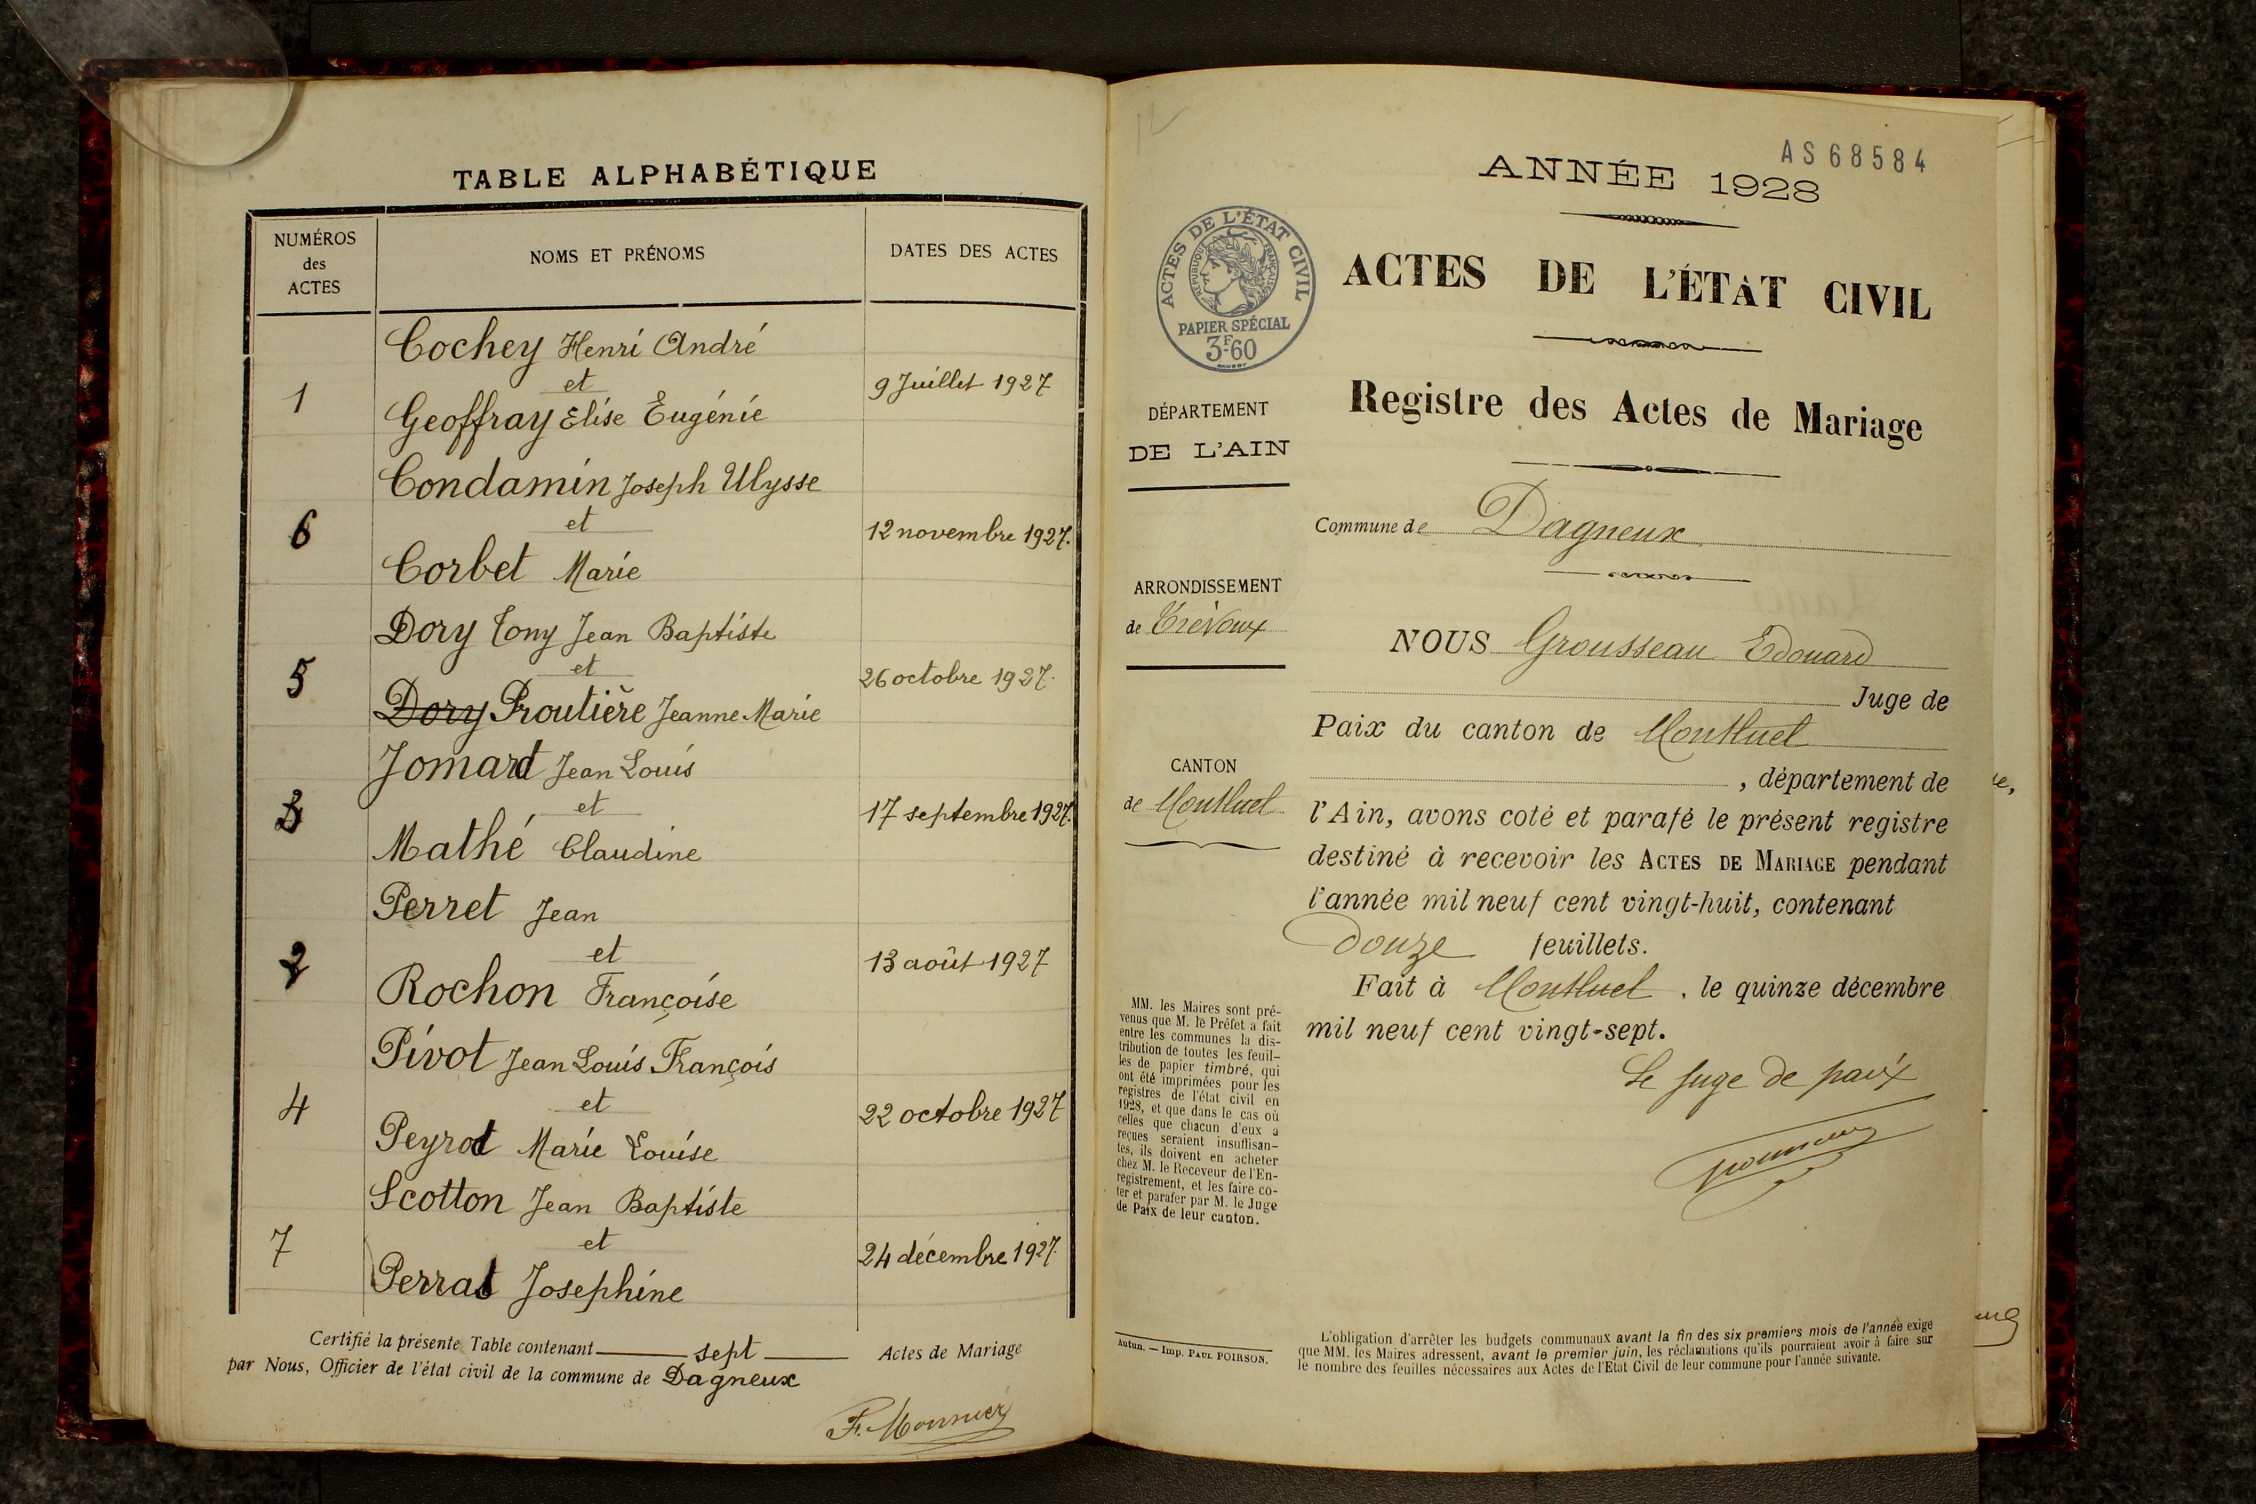 TABLE ALPHABÉTIQUE
NUMÉROS
des
ACTES
NOMS ET PRÉNOMS
DATES DES ACTES
Cochey Henri André
et
1
9 Juillet 1927
Geoffray Elise Eugénie
Condamin Joseph Ulysse
et
6
12 novembre 1927.
Corbet Marie
Dory Tony Jean Baptiste
et
5
26 octobre 1927.
Dory Proutière Jeanne Marie
Jomard Jean Louis
et
3
17 septembre 1927.
Mathé Claudine
Perret Jean
et
2
13 août 1927
Rochon Françoise
Pivot Jean Louis François
et
4
22 octobre 1927
Peyrot Marie Louise
Scotton Jean Baptiste
et
7
24 décembre 1927.
Perrat Josephine
Certifié la présente Table contenant sept Actes de Mariage
par Nous, Officier de l'état civil de la commune de Dagneux
F. Monnier
AS 68584
ANNÉE 1928
ACTES DE L'ÉTAT CIVIL
RÉPUBLIQUE FRANÇAISE
PAPIER SPÉCIAL
3F60
ACTES DE L'ÉTAT CIVIL
Registre des Actes de Mariage
DÉPARTEMENT
DE L'AIN
Commune de Dagneux
ARRONDISSEMENT
de Trévoux
NOUS Grousseau Edouard
Juge de
Paix du canton de Montluel
CANTON
de Montluel
, département de
l'Ain, avons coté et parafé le présent registre
destiné à recevoir les ACTES DE MARIAGE pendant
l'année mil neuf cent vingt-huit, contenant
douze feuillets.
Fait à Montluel, le quinze décembre
mil neuf cent vingt-sept.
Le Juge de paix
MM. les Maires sont pré-
venus que M. le Préfet a fait
entre les communes la dis-
tribution de toutes les feuil-
les de papier timbré, qui
ont été imprimées pour les
registres de l'état civil en
1928, et que dans le cas où
celles que chacun d'eux a
reçues seraient insuffisan-
tes, ils doivent en acheter
chez M. le Receveur de l'En-
registrement, et les faire co-
ter et parafer par M. le Juge
de Paix de leur canton.
Autun. — Imp. PAUL POIRSON.
L'obligation d'arrêter les budgets communaux avant la fin des six premiers mois de l'année exige
que MM. les Maires adressent, avant le premier juin, les réclamations qu'ils pourraient avoir à faire sur
le nombre des feuilles nécessaires aux Actes de l'Etat Civil de leur commune pour l'année suivante.